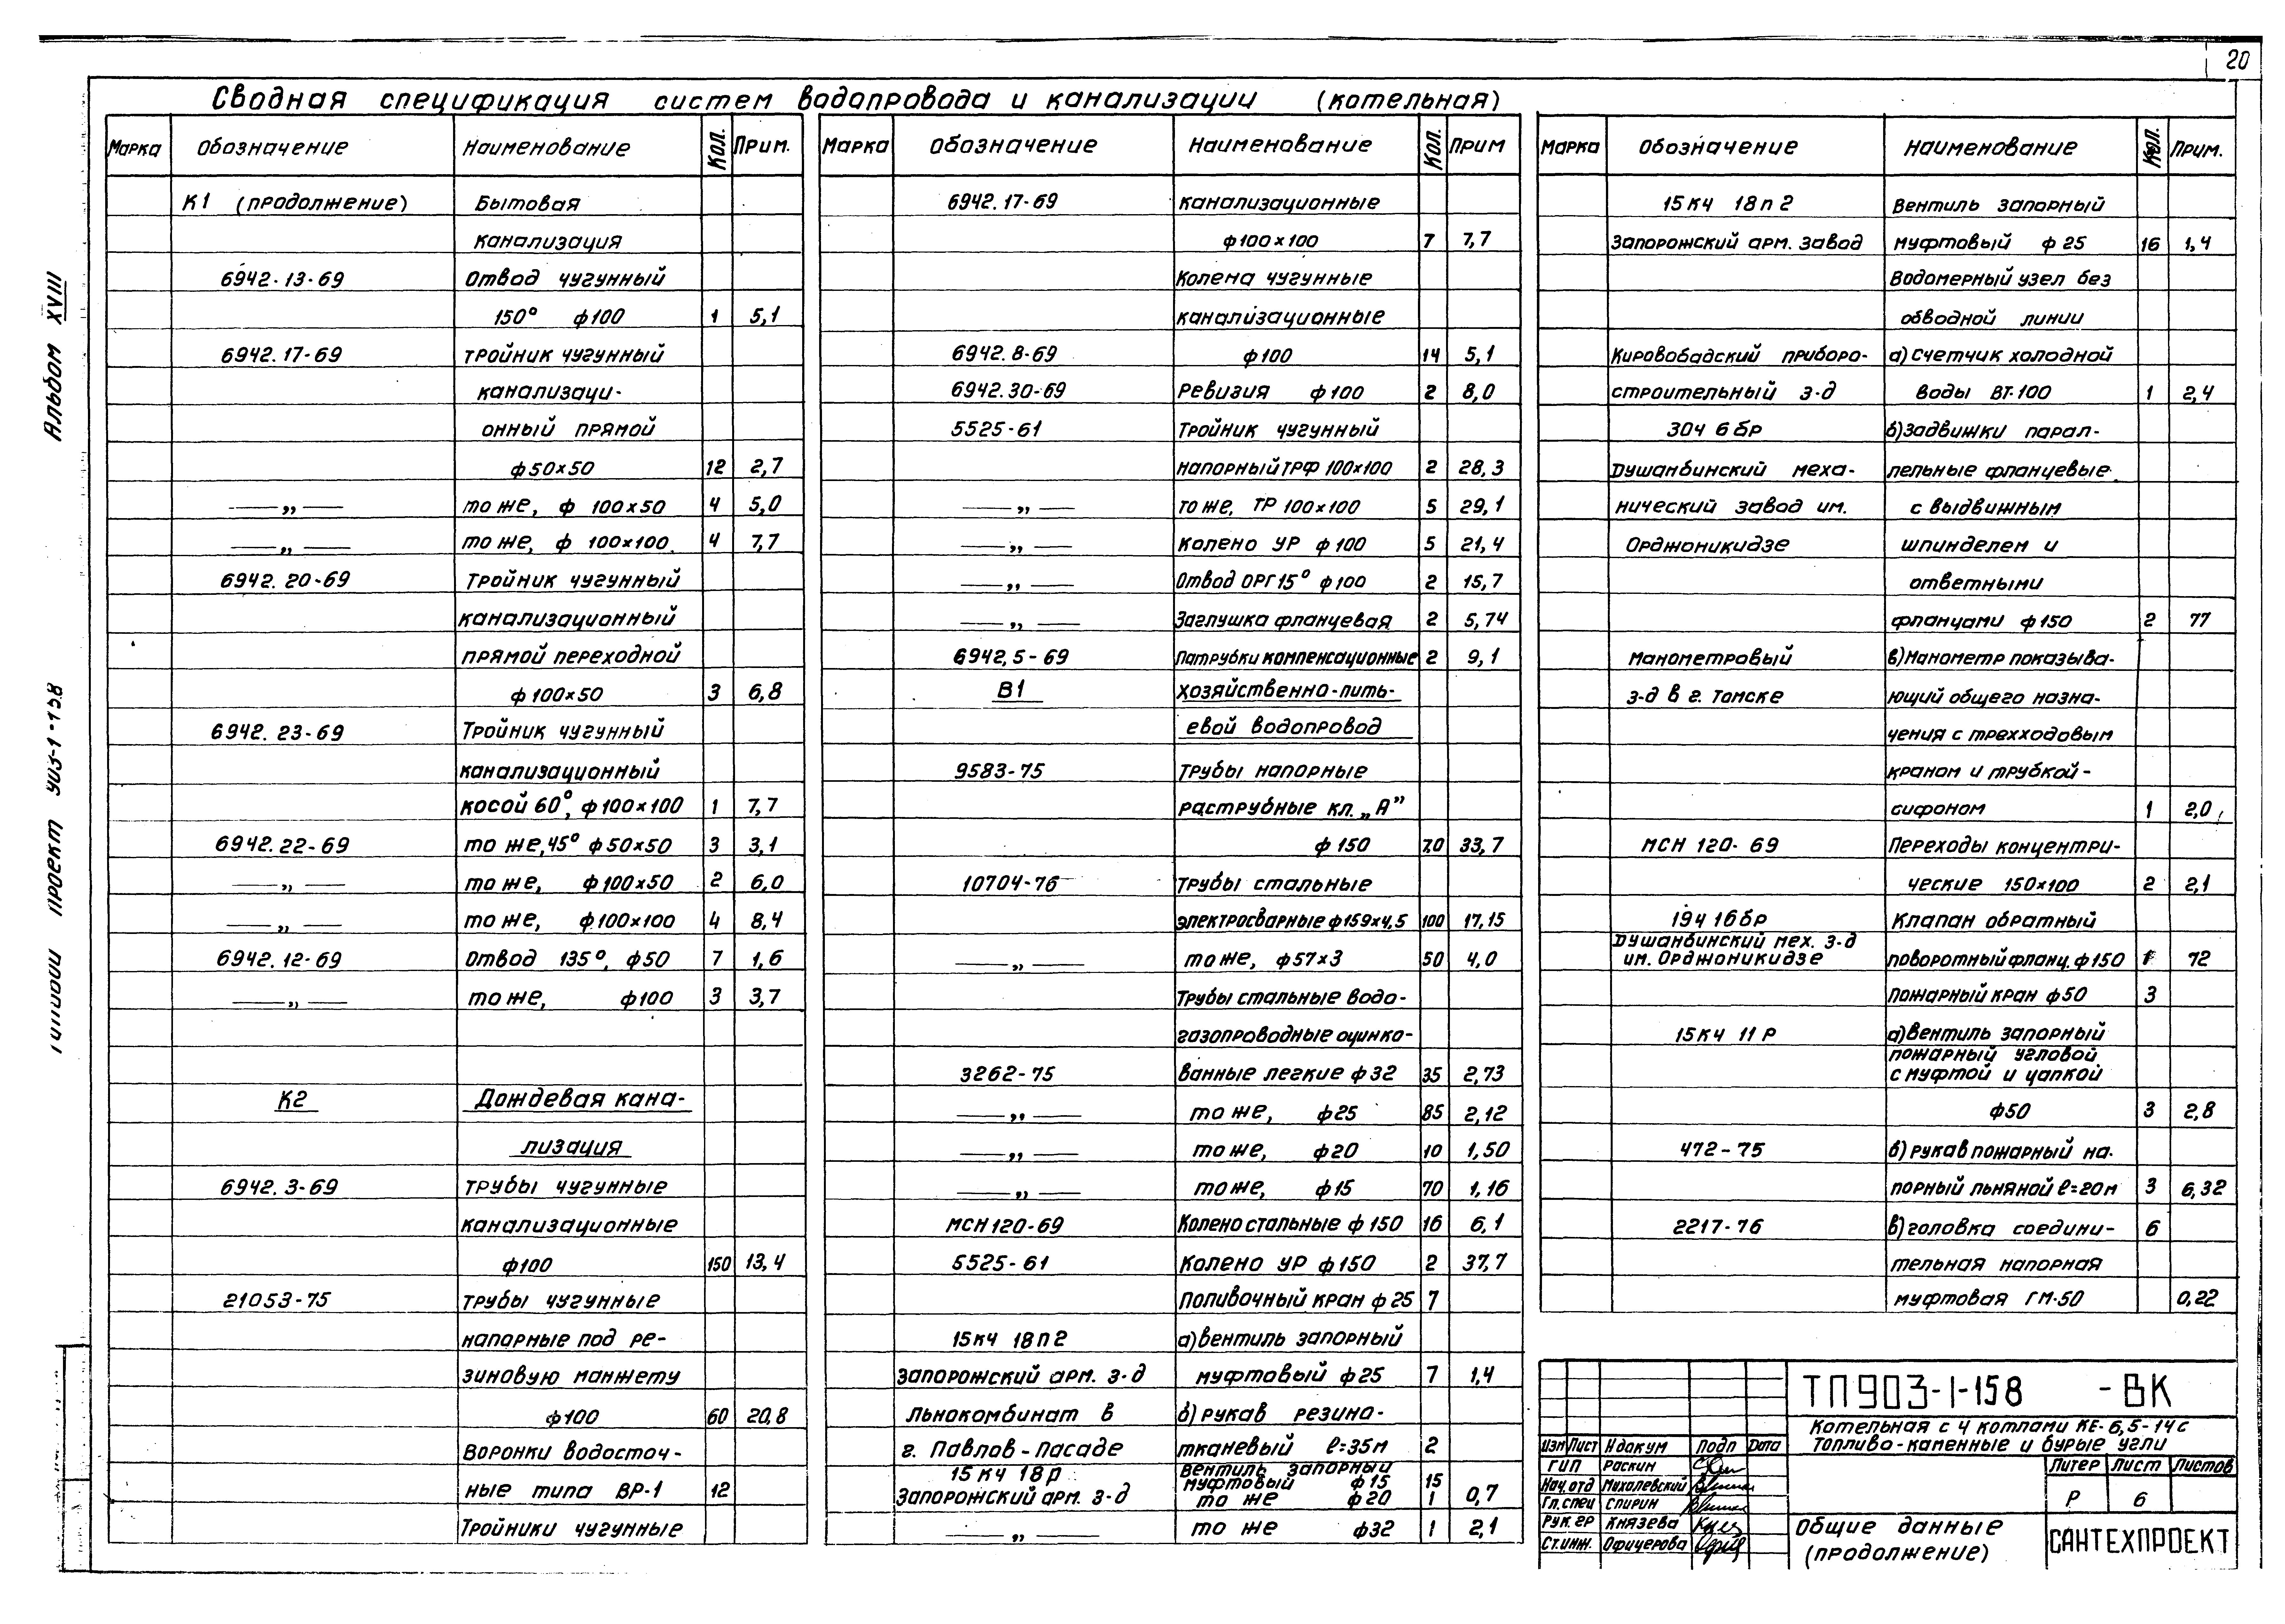 20
Сводная спецификация систем водопровода и канализации (котельная)
Альбом XVIII
проект 903-1-158
Марка Обозначение Наименование Кол. Прим.
К1 (продолжение) Бытовая
канализация
6942.13-69 Отвод чугунный
150° ф100 1 5,1
6942.17-69 Тройник чугунный
канализаци-
онный прямой
ф50х50 12 2,7
—„— то же, ф 100х50 4 5,0
—„— то же, ф 100х100 4 7,7
6942.20-69 Тройник чугунный
канализационный
прямой переходной
ф100х50 3 6,8
6942.23-69 Тройник чугунный
канализационный
косой 60°, ф100х100 1 7,7
6942.22-69 то же, 45° ф50х50 3 3,1
—„— то же, ф100х50 2 6,0
—„— то же, ф100х100 4 8,4
6942.12-69 Отвод 135°, ф50 7 1,6
—„— то же, ф100 3 3,7
К2 Дождевая кана-
лизация
6942.3-69 Трубы чугунные
канализационные
ф100 150 13,4
21053-75 Трубы чугунные
напорные под ре-
зиновую манжету
ф100 60 20,8
Воронки водосточ-
ные типа ВР-1 12
Тройники чугунные
Марка Обозначение Наименование Кол. Прим
6942.17-69 канализационные
ф100х100 7 7,7
Колена чугунные
канализационные
6942.8-69 ф100 14 5,1
6942.30-69 Ревизия ф100 2 8,0
5525-61 Тройник чугунный
напорный ТРФ 100х100 2 28,3
—„— то же, ТР 100х100 5 29,1
—„— Колено УР ф100 5 21,4
—„— Отвод ОРГ 15° ф100 2 15,7
—„— Заглушка фланцевая 2 5,74
6942.5-69 Патрубки компенсационные 2 9,1
В1 Хозяйственно-пить-
евой водопровод
9583-75 Трубы напорные
раструбные кл. „А”
ф150 70 33,7
10704-76 Трубы стальные
электросварные ф159х4,5 100 17,15
—„— то же, ф57х3 50 4,0
Трубы стальные водо-
газопроводные оцинко-
3262-75 ванные легкие ф32 35 2,73
—„— то же, ф25 85 2,12
—„— то же, ф20 10 1,50
—„— то же, ф15 70 1,16
МСН 120-69 Колено стальные ф150 16 6,1
5525-61 Колено УР ф150 2 37,7
Поливочный кран ф25 7
15кч 18п2 а) вентиль запорный
Запорожский арм. з-д муфтовый ф25 7 1,4
Льнокомбинат в б) рукав резино-
г. Павлов-Посаде тканевый ℓ=35м 2
15кч 18р вентиль запорный
муфтовый ф15 15
Запорожский арм. з-д то же ф20 1 0,7
—„— то же ф32 1 2,1
Марка Обозначение Наименование Кол. Прим.
15кч 18п2 Вентиль запорный
Запорожский арм. завод муфтовый ф25 16 1,4
Водомерный узел без
обводной линии
Кировобадский приборо- а) Счетчик холодной
строительный з-д воды ВТ-100 1 2,4
30ч 6бр б) Задвижки парал-
Душанбинский меха- лельные фланцевые
нический завод им. с выдвижным
Орджоникидзе шпинделем и
ответными
фланцами ф150 2 77
Манометровый в) Манометр показыва-
з-д в г. Томске ющий общего назна-
чения с трехходовым
краном и трубкой-
сифоном 1 2,0
МСН 120-69 Переходы концентри-
ческие 150х100 2 2,1
19ч 16бр Клапан обратный
Душанбинский мех. з-д
им. Орджоникидзе поворотный фланц. ф150 1 72
Пожарный кран ф50 3
15кч 11р а) вентиль запорный
пожарный угловой
с муфтой и цапкой
ф50 3 2,8
472-75 б) рукав пожарный на-
порный льняной ℓ=20м 3 6,32
2217-76 в) головка соедини- 6
тельная напорная
муфтовая ГМ-50 0,22
ТП903-1-158 -ВК
Котельная с 4 котлами КЕ-6,5-14с
Топливо-каменные и бурые угли
Изм Лист N докум Подп Дата
ГИП Раскин
Нач.отд Михалевский
Гл.спец Спирин
Рук.гр Князева
Ст.инж. Офицерова
Литер Лист Листов
Р 6
Общие данные
(продолжение)
САНТЕХПРОЕКТ